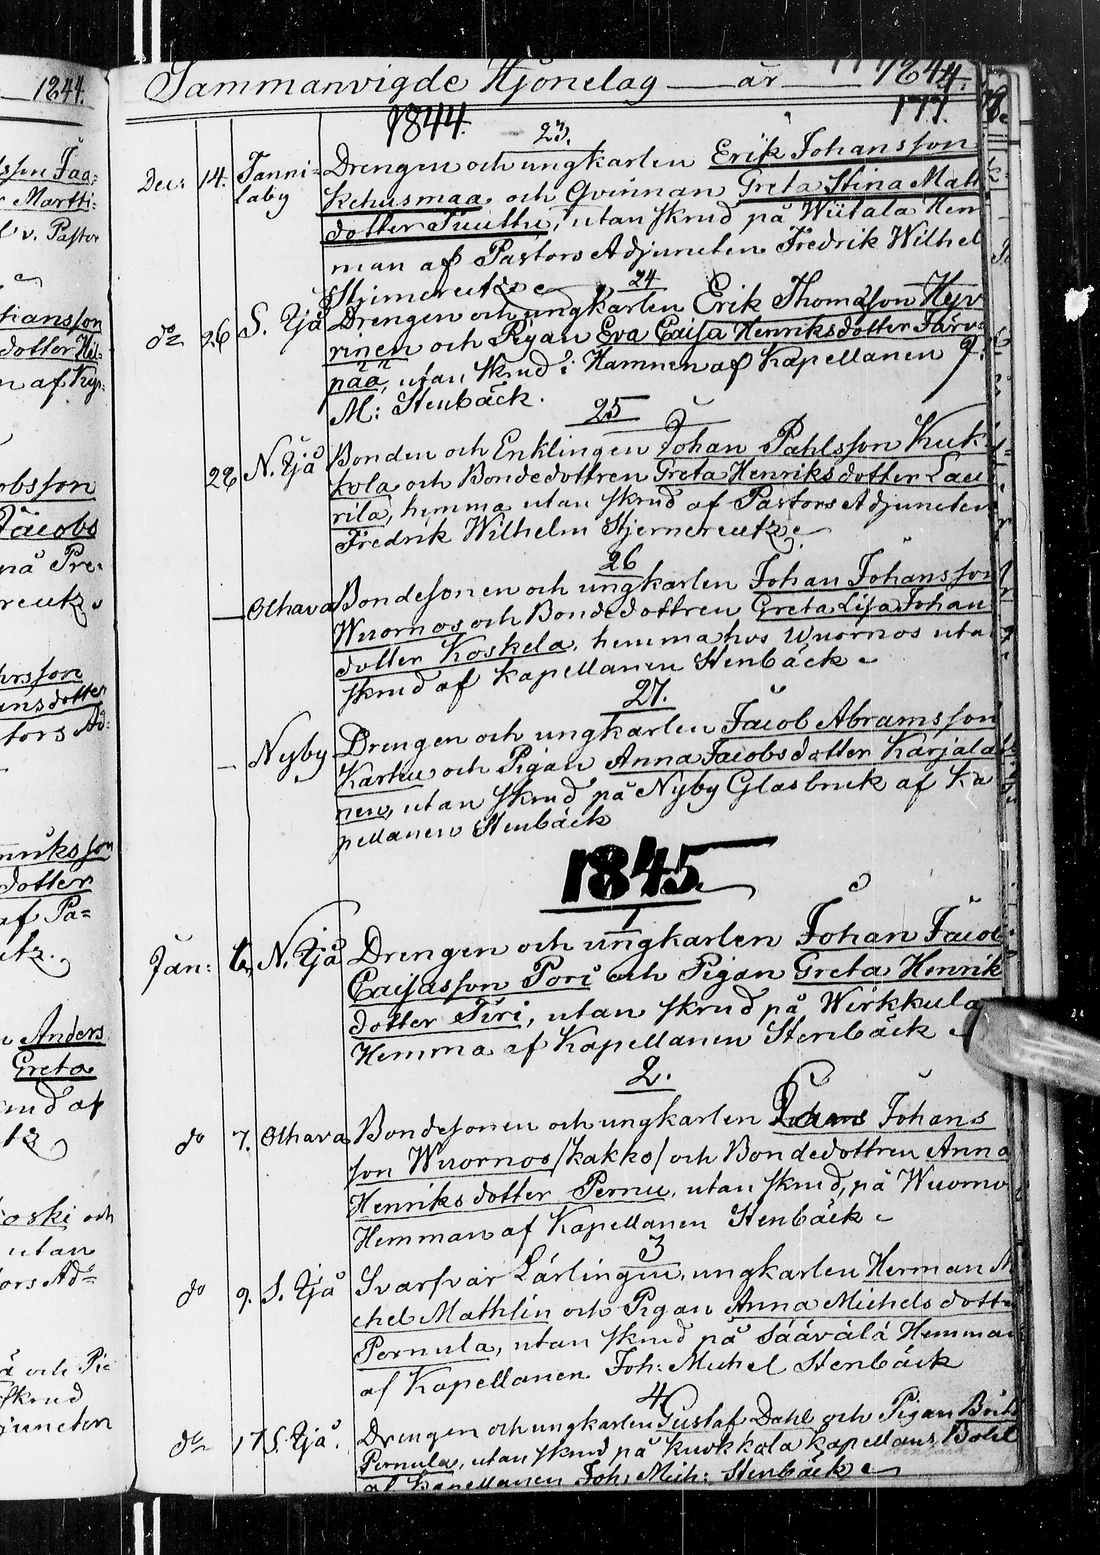 Sammanvigde Hjonelag — år 1844.
1844. 177.
23.
Dec: 14. Tanni- Drengen och ungkarlen Erik Johansson
laby Kehusmaa och Qvinnan Greta Stina Matt
dotter Tuuttu, utan skrud på Wiitala Hem
man af Pastors Adjuncten Fredrik Wilhel
Stjernereutz
24
do 26 S. Ijå Drengen och ungkarlen Erik Thomasson Hyv
rinen och Pigan Eva Caisa Henriksdotter Järv
pää, utan skrud i Hamnen af Kapellanen J.
M: Stenbäck.
25
28 N. Ijå Bonden och Enklingen Johan Pahlsson Kuk
kola och Bondedottren Greta Henriksdotter Lau
rila, hemma utan skrud af Pastors Adjuncten
Fredrik Wilhelm Stjernereutz
26
— Olhava Bondesonen och ungkarlen Johan Johansson
Wuornos och Bondedottren Greta Lisa Johan
dotter Koskela, hemma hos Wuornos uta
skrud af Kapellanen Stenbäck
27.
— Nyby Drengen och ungkarlen Jacob Abramsson
Karhu och Pigan Anna Jacobsdotter Karjala
nen, utan skrud på Nyby Glasbruk af Ka
pellanen Stenbäck
1845
1
Jan: 6, N. Ijå Drengen och ungkarlen Johan Jacob
Caijasson Pori och Pigan Greta Henrik
dotter Tiri, utan skrud på Wirkkula
Hemma af Kapellanen Stenbäck
2.
do 7. Olhava Bondesonen och ungkarlen Johans
son Wuornos /Kakko/ och Bondedottren Anna
Henriksdotter Pernu, utan skrud, på Wuorno
Hemman af Kapellanen Stenbäck
3
do 9. S. Ijå Svarfvar Lärlingen, ungkarlen Herman M
chel Mathlin och Pigan Anna Michelsdotte
Pernula, utan skrud på Säävälä Hemman
af Kapellanen Joh: Michel Stenbäck
4
do 17 S. Ijå. Drengen och ungkarlen Gustaf Dahl och Pigan Brita
Pernula, utan skrud på Kuokkola Kapellans Bohl
af Kapellanen Joh: Mich: Stenbäck